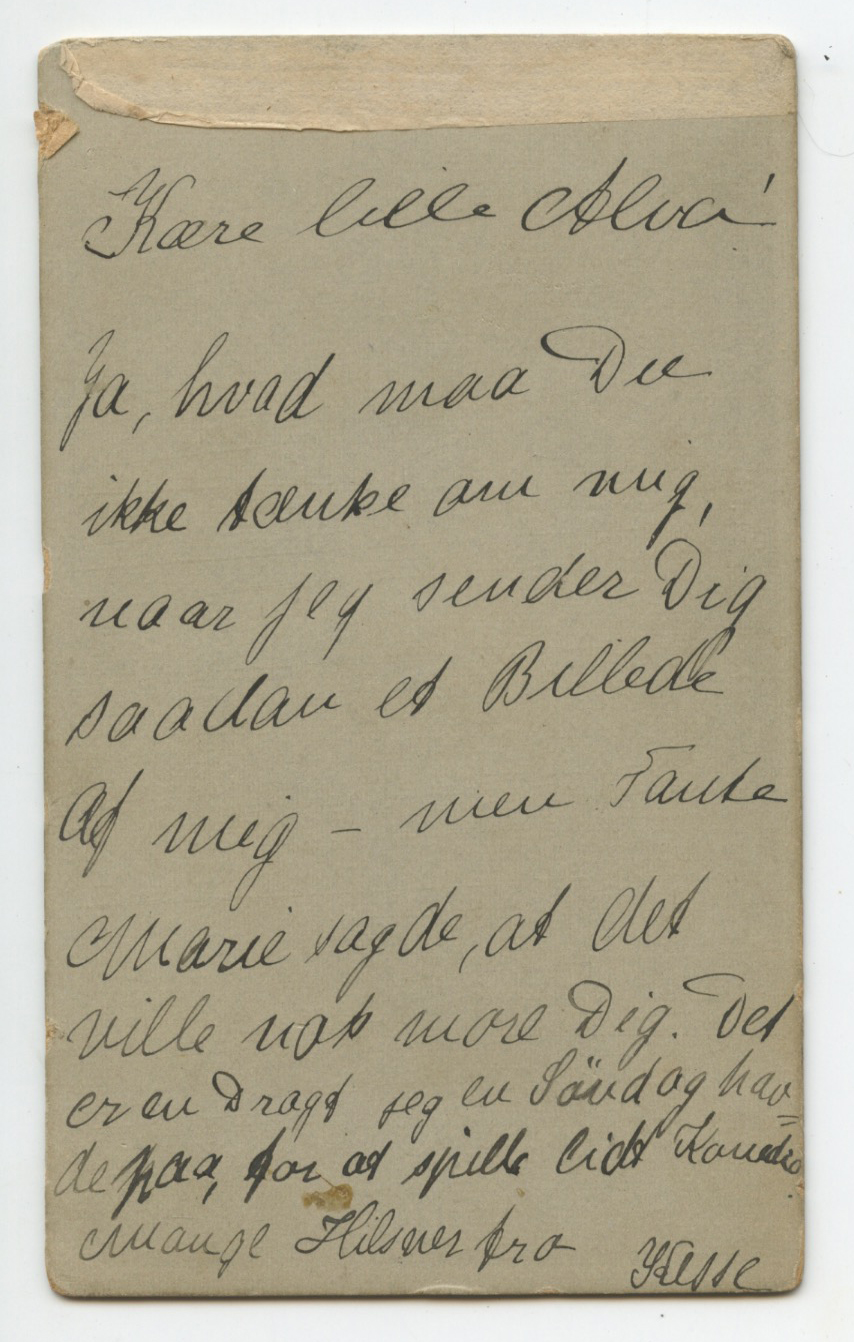 Kære lille Alva!
Ja, hvad maa Du
ikke tænke om mig,
naar jeg sender Dig
saadan et Billede
af mig – men Tante
Marie sagde, at det
ville nok more Dig. Det
er en Dragt jeg en Söndag hav=
de paa, for at spille lidt Komedie.
Mange Hilsner fra